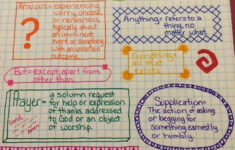 Anxious = experiencing
worry, unease
or nervousness,
typically about
an imminent
event or something
with an uncertain
outcome.
Anything = refers to a
thing, no
matter what.
But = except; apart from;
other than.
Everything =
all that
exists
Prayer = a solemn request
for help or expression
of thanks addressed
to God or an object
of worship.
Supplication =
The action of asking
or begging for
something earnestly
or humbly.